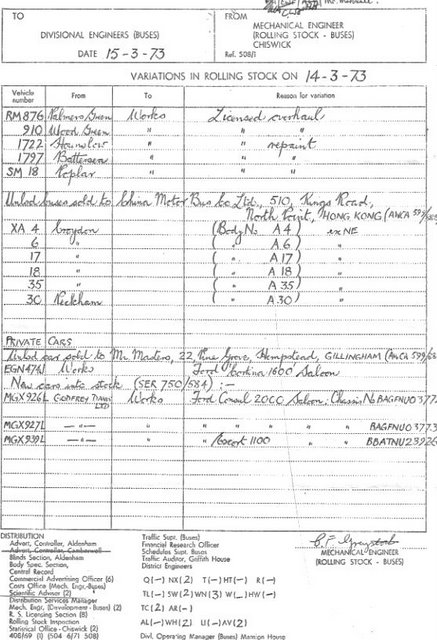 TO
DIVISIONAL ENGINEERS (BUSES)
DATE 15-3-73
FROM
MECHANICAL ENGINEER
(ROLLING STOCK - BUSES)
CHISWICK
Ref. 508/1
VARIATIONS IN ROLLING STOCK ON 14-3-73
Vehicle number From To Reason for variation
RM 876 Palmers Green Works Licensed overhaul
910 Wood Green " " "
1722 Hounslow " " repaint
1797 Battersea " " "
SM 18 Poplar " " "
Unlod buses sold to China Motor Bus Co Ltd., 510, Kings Road,
North Point, HONG KONG (ANCA
XA 4 Croydon (Body No A4) ex NE
6 " ( " A6 ) "
17 " ( " A17 ) "
18 " ( " A18 ) "
35 " ( " A35 ) "
30 Peckham ( " A30 ) "
PRIVATE CARS
Unlod car sold to Mr. Masters, 22, Pine Grove, Hempstead, GILLINGHAM (ANCA
EGN 474J Works Ford Cortina 1600 Saloon
New cars into stock (SER 750/584) :-
MGX 926L GODFREY DAVIS LTD Works Ford Consul 2000 Saloon: Chassis No BAGFNU0
MGX 927L -"- " " " " " " BAGFNU03773
MGX 939L -"- " " Escort 1100 " " BBATNU23926
C.F.
MECHANICAL ENGINEER
(ROLLING STOCK - BUSES)
DISTRIBUTION
Advert. Controller, Aldenham
Advert. Controller, Camberwell
Blinds Section, Aldenham
Body Spec. Section,
Central Record
Commercial Advertising Officer (6)
Costs Office (Mech. Engr.-Buses)
Scientific Adviser (2)
Distribution Services Manager
Mech. Engr. (Development - Buses) (2)
R. S. Licensing Section (8)
Rolling Stock Inspection
Statistical Office - Chiswick (2)
408/69 (1) (504 6/7) 508)
Traffic Supt. (Buses)
Financial Research Officer
Schedules Supt. Buses
Traffic Auditor, Griffith House
District Engineers
Q(-) NX(2) T(-) HT(-) R(-)
TL(-) SW(2) WN(3) W(-) HW(-)
TC(2) AR(-)
AL(-) WH(2) U(-) AV(2)
Divl. Operating Manager (Buses) Manson House